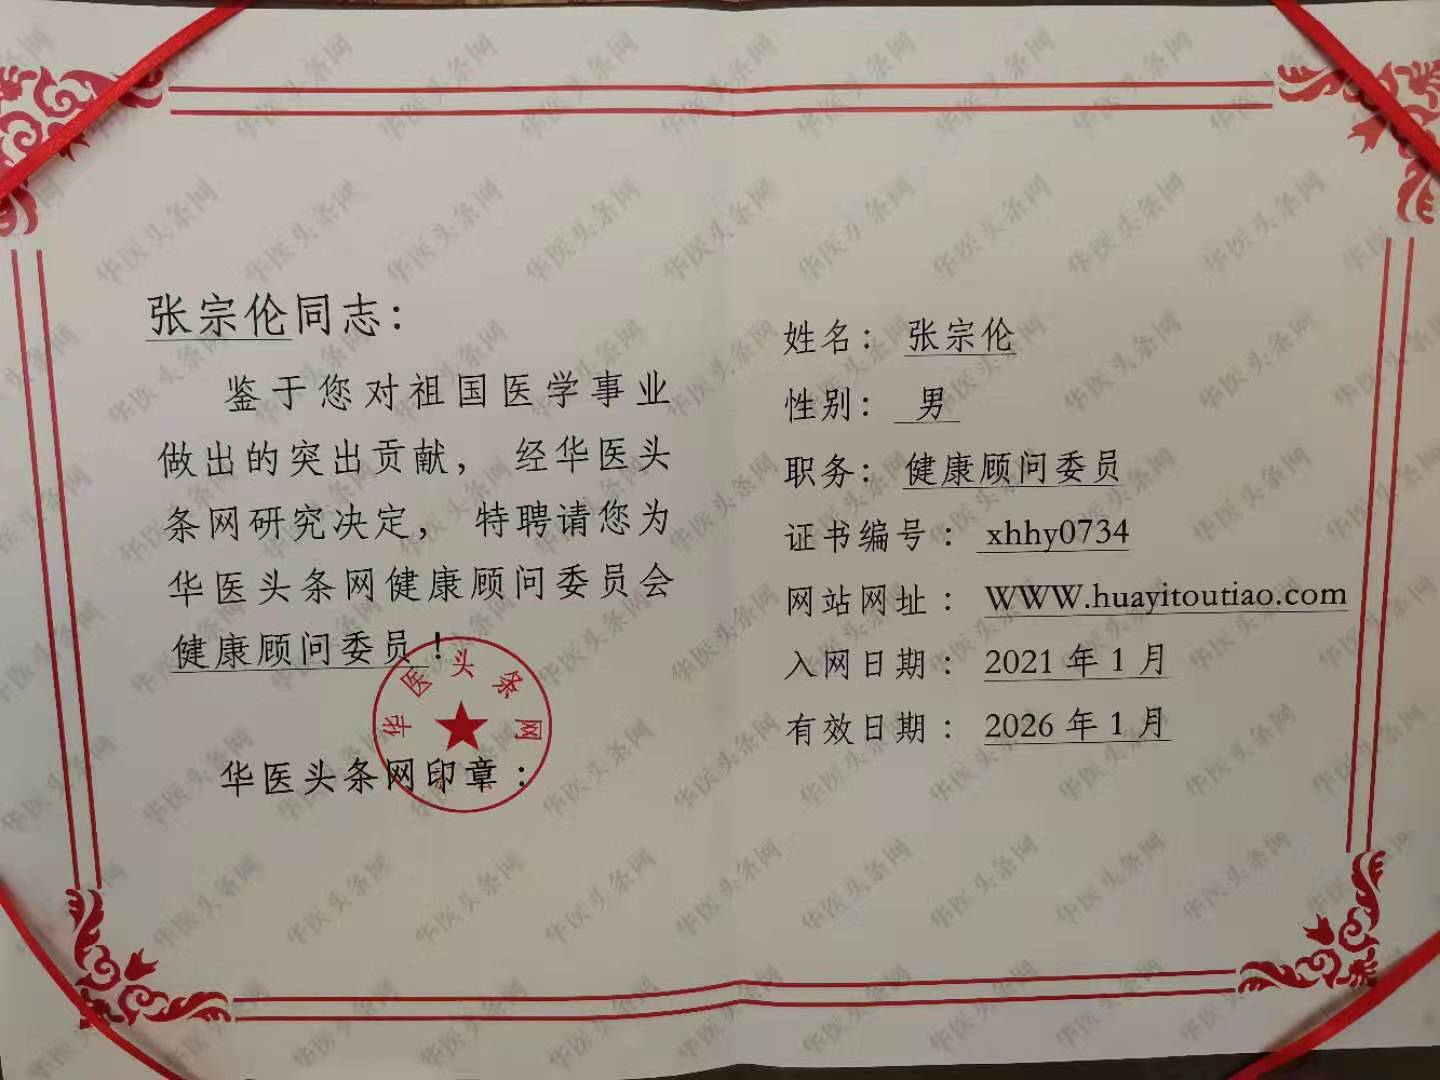 张宗伦同志：
鉴于您对祖国医学事业
做出的突出贡献，经华医头
条网研究决定，特聘请您为
华医头条网健康顾问委员会
健康顾问委员！
华医头条网
华医头条网印章：
姓名：张宗伦
性别：男
职务：健康顾问委员
证书编号：xhhy0734
网站网址：WWW.huayitoutiao.com
入网日期：2021年1月
有效日期：2026年1月
华医头条网